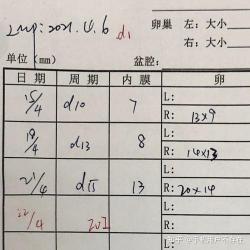 Lmp: 2021.4.6 d1
卵巢 左:大小
右:大小
单位(mm) 盆腔:
日期 周期 内膜 卵
15/4 d10 7 L:
R: 13×9
19/4 d13 8 L:
R: 14×13
21/4 d15 13 L:
R: 20×14
22/4 L:
R:
知乎 @手机用户不存在